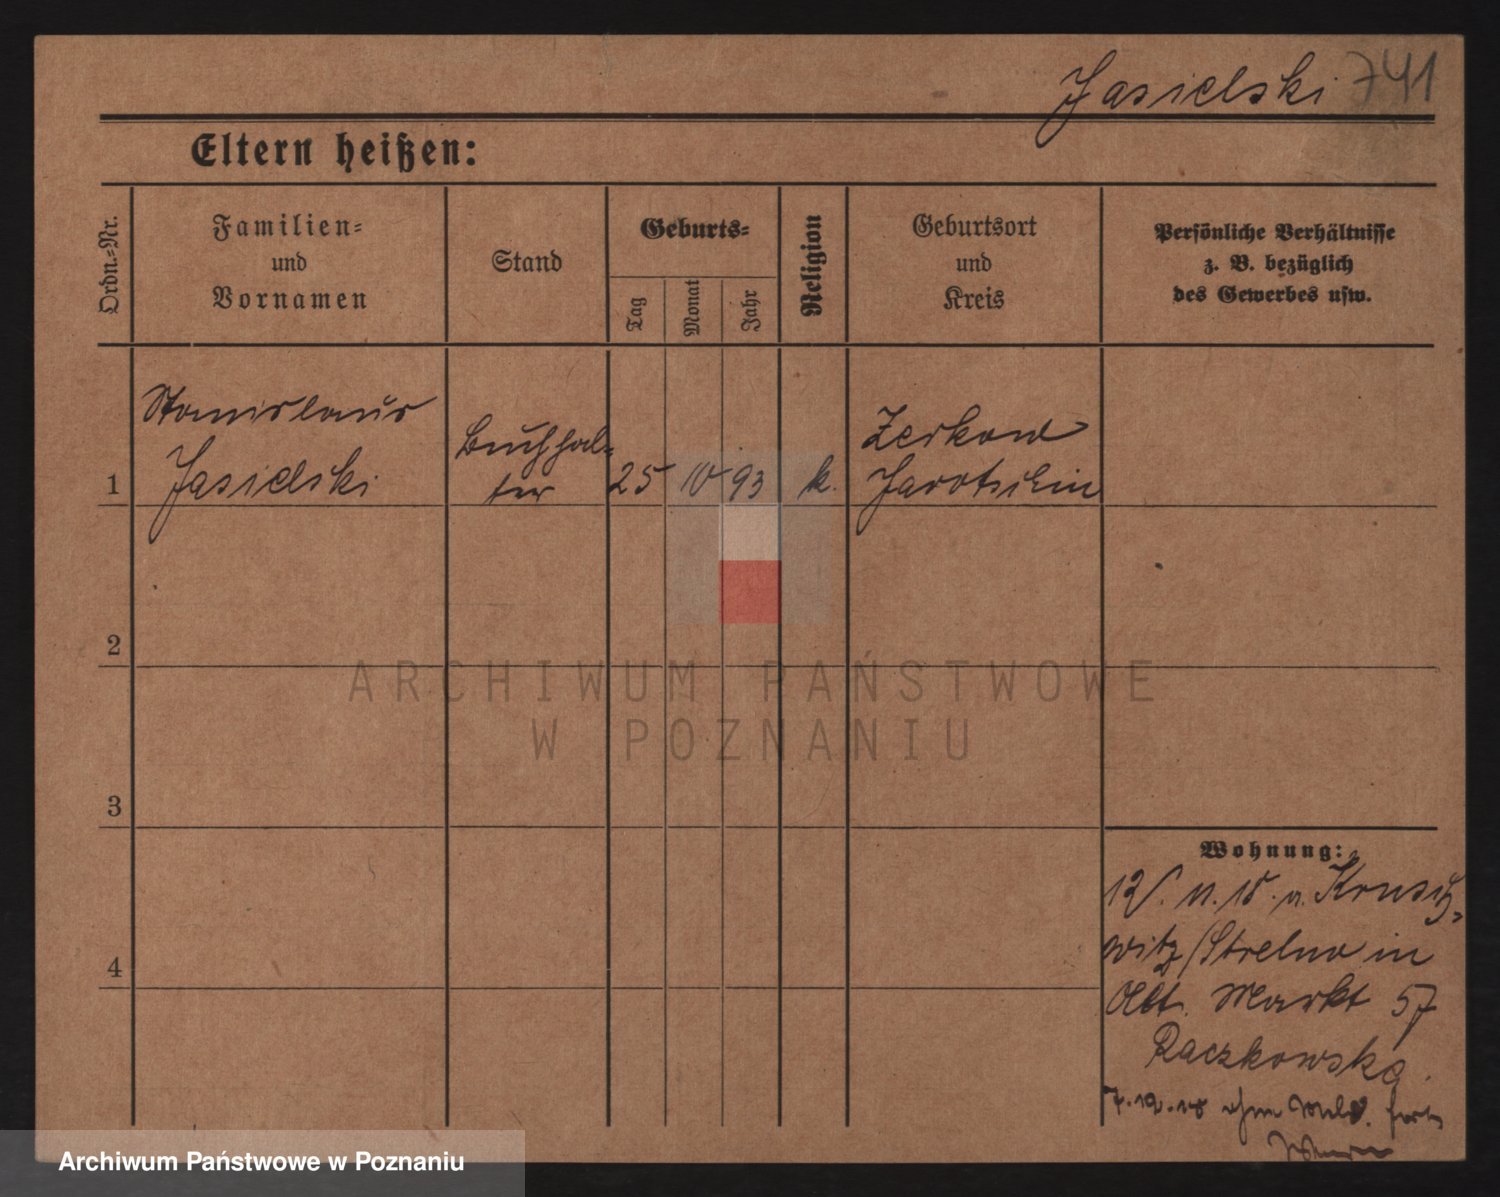 Jasielski 741
Eltern heißen:
Ordn.-Nr.
Familien-
und
Vornamen
Stand
Geburts-
Tag
Monat
Jahr
Religion
Geburtsort
und
Kreis
Persönliche Verhältnisse
z. B. bezüglich
des Gewerbes usw.
1
Stanislaus
Jasielski
Buchhal-
ter
25
93
k.
Zerkow
Jarotschin
2
3
4
Wohnung:
Krusch-
witz/Strelno in
Alt. Markt 57
Raczkowska.
ohne Meld. fort
ARCHIWUM PAŃSTWOWE
W POZNANIU
Archiwum Państwowe w Poznaniu